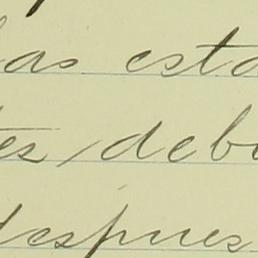 las esta
tes, deb
despues